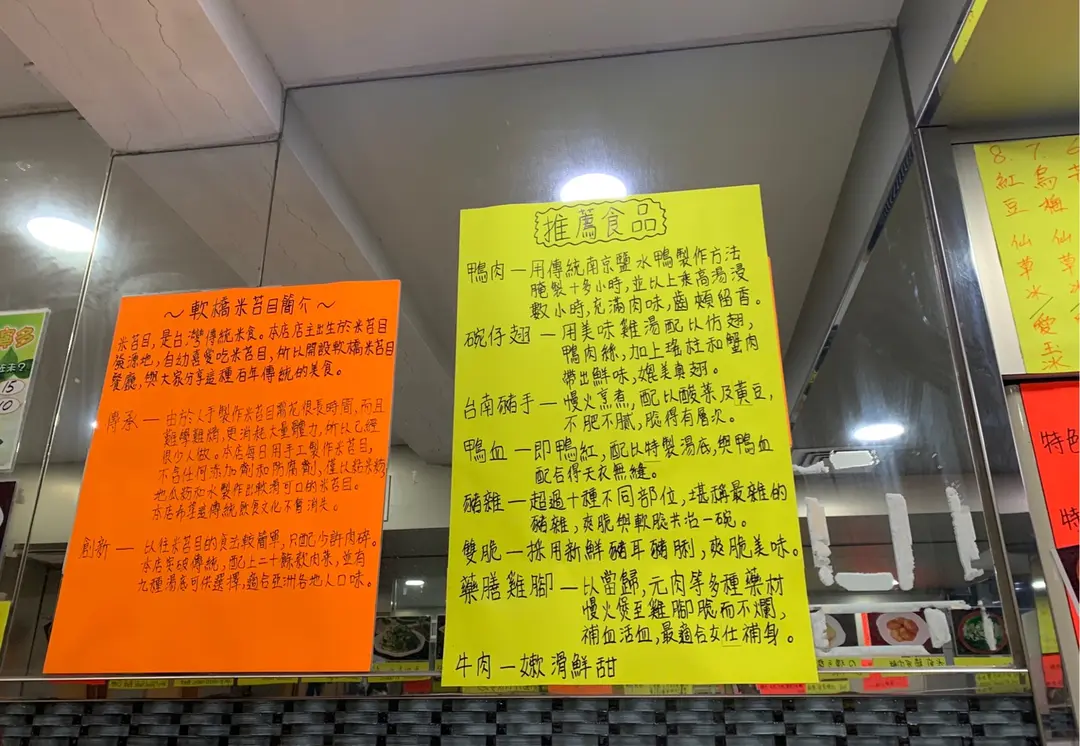 ～軟橋米苔目簡介～
米苔目，是台灣傳統米食。本店店主出生於米苔目
發源地，自幼喜愛吃米苔目，所以開設軟橋米苔目
餐廳，與大家分享這種百年傳統的美食。
傳承—由於人手製作米苔目需花很長時間，而且
難學難精，更消耗大量體力，所以已經
很少人做。本店每日用手工製作米苔目，
不含任何添加劑和防腐劑，僅以粘米粉
地瓜粉和水製作出軟滑可口的米苔目。
本店希望這傳統飲食文化不會消失。
創新—以往米苔目的食法較簡單，只配少許肉碎。
本店突破傳統，配上二十餘款肉菜，並有
九種湯食可供選擇，適合亞洲各地人口味。
推薦食品
鴨肉—用傳統南京鹽水鴨製作方法
醃製十多小時，並以上乘高湯浸
數小時，充滿肉味，齒頰留香。
碗仔翅—用美味雞湯配以仿翅，
鴨肉絲，加上瑤柱和蟹肉
帶出鮮味，媲美真翅。
台南豬手—慢火烹煮，配以酸菜及黃豆，
不肥不膩，脆得有層次。
鴨血—即鴨紅，配以特製湯底，與鴨血
配合得天衣無縫。
豬雜—超過十種不同部位，堪稱最雜的
豬雜，爽脆與軟脆共冶一碗。
雙脆—採用新鮮豬耳豬脷，爽脆美味。
藥膳雞腳—以當歸，元肉等多種藥材
慢火煲至雞腳脆而不爛，
補血活血，最適合女仕補身。
牛肉—嫩滑鮮甜
8.
7.
紅豆仙草冰
烏梅仙草冰
愛玉
15
10
特色
特